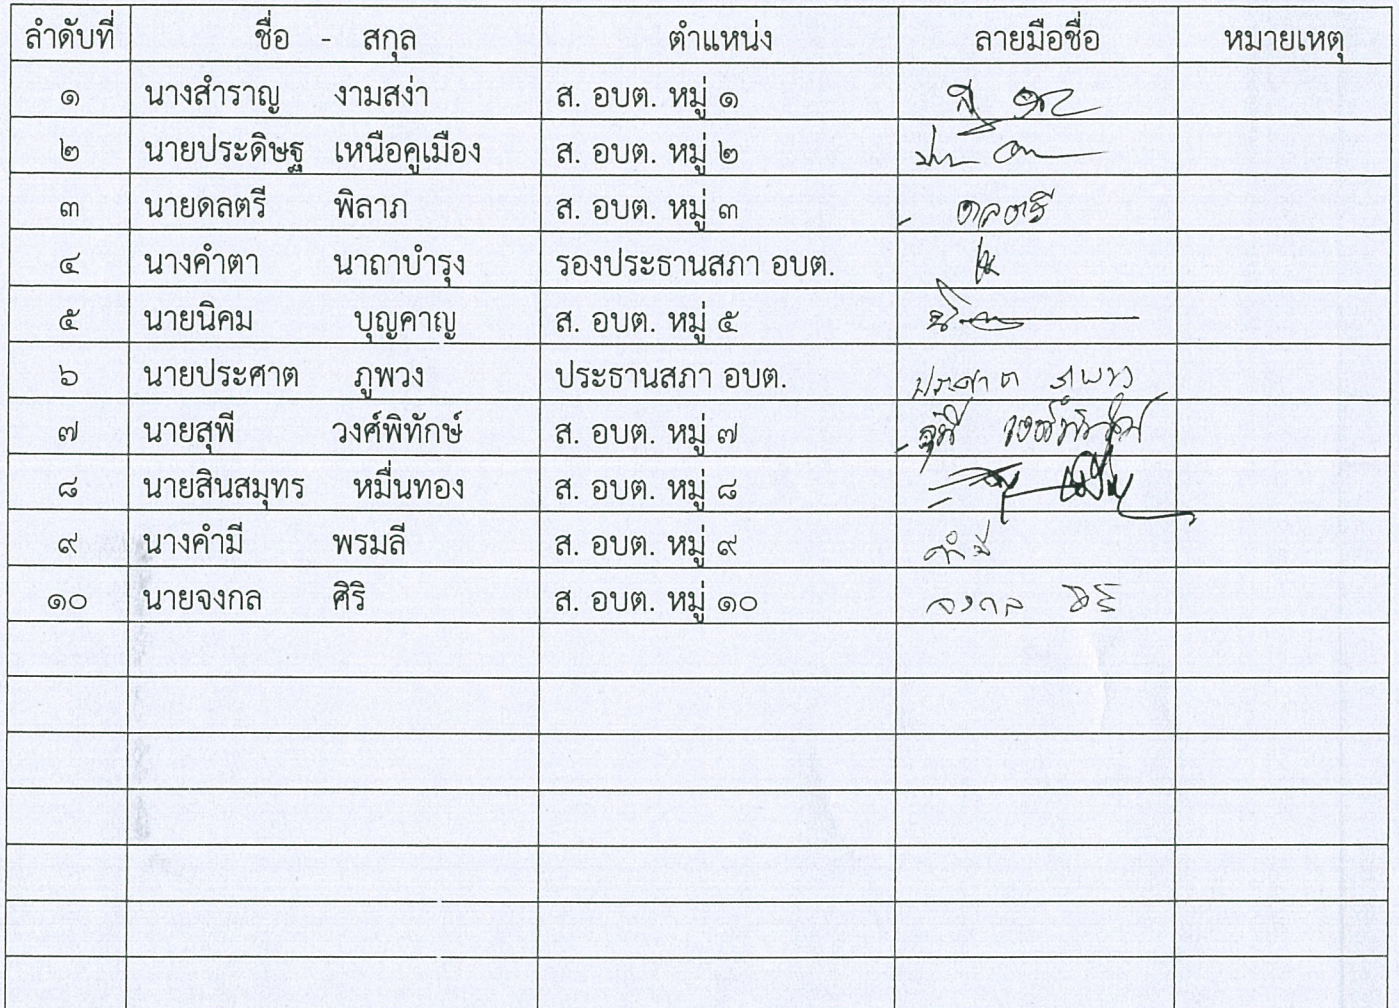 ลำดับที่ ชื่อ - สกุล ตำแหน่ง ลายมือชื่อ หมายเหตุ
๑ นางสำราญ งามสง่า ส. อบต. หมู่ ๑
๒ นายประดิษฐ เหนือคูเมือง ส. อบต. หมู่ ๒
๓ นายดลตรี พิลาภ ส. อบต. หมู่ ๓ ดลตรี
๔ นางคำตา นาถาบำรุง รองประธานสภา อบต.
๕ นายนิคม บุญคาญ ส. อบต. หมู่ ๕
๖ นายประศาต ภูพวง ประธานสภา อบต. ประศาต ภูพวง
๗ นายสุพี วงศ์พิทักษ์ ส. อบต. หมู่ ๗ สุพี วงศ์พิทักษ์
๘ นายสินสมุทร หมื่นทอง ส. อบต. หมู่ ๘
๙ นางคำมี พรมลี ส. อบต. หมู่ ๙ คำมี
๑๐ นายจงกล ศิริ ส. อบต. หมู่ ๑๐ จงกล ศิริ